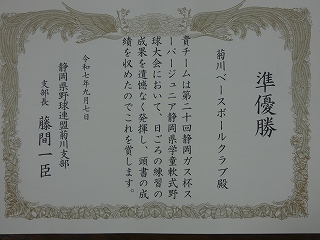 準優勝
菊川ベースボールクラブ殿
貴チームは第二十回静岡ガス杯ス
ーパージュニア静岡県学童軟式野
球大会において、日ごろの練習の
成果を遺憾なく発揮し、頭書の成
績を収めたのでこれを賞します。
令和七年九月七日
静岡県野球連盟菊川支部
支部長 藤間一臣